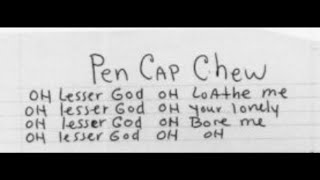 Pen CAP Chew
OH Lesser God OH LoAthe me
OH lesser God OH your lonely
OH lesser God OH Bore me
OH lesser God OH OH